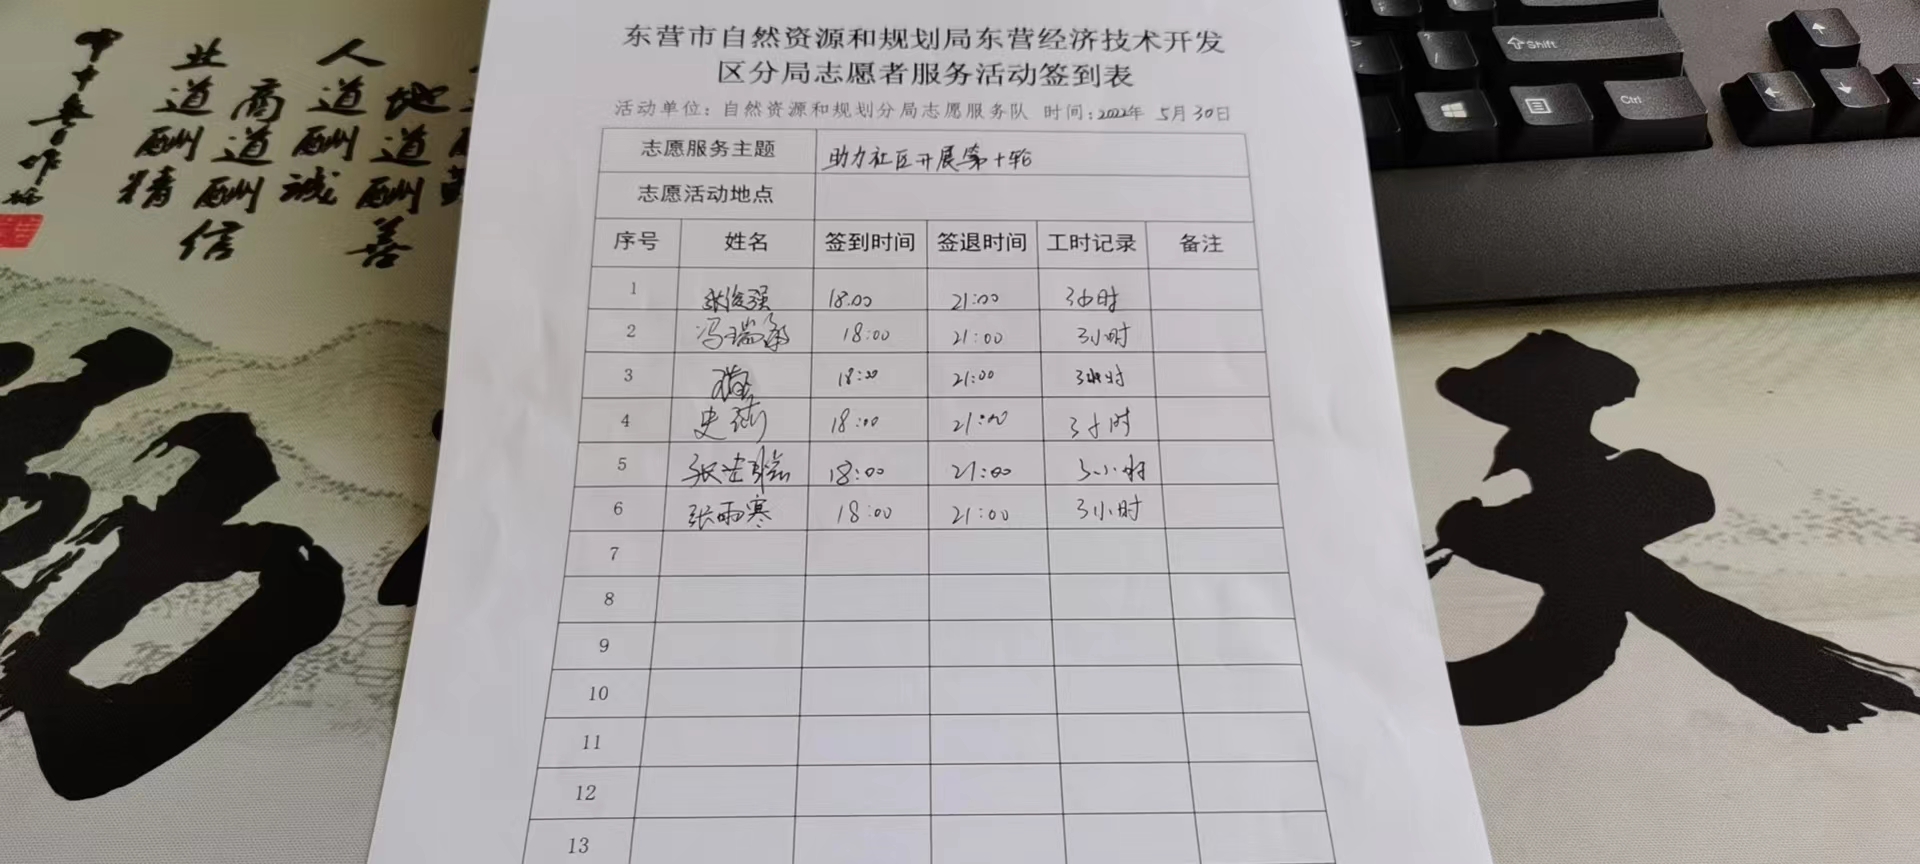 东营市自然资源和规划局东营经济技术开发
区分局志愿者服务活动签到表
活动单位：自然资源和规划分局志愿服务队 时间：2022年 5月30日
志愿服务主题 助力社区开展第十轮
志愿活动地点
序号 姓名 签到时间 签退时间 工时记录 备注
1 张俊强 18:00 21:00 3小时
2 冯瑞 18:00 21:00 3小时
3 18:00 21:00 3小时
4 史 18:00 21:00 3小时
5 张 18:00 21:00 3小时
6 张雨寒 18:00 21:00 3小时
7
8
9
10
11
12
13
业道酬精
商道酬信
人道酬诚
地道酬善
天
Shift
Ctrl